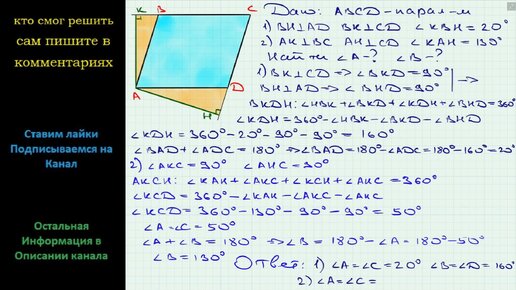 кто смог решить
сам пишите в
комментариях
Ставим лайки
Подписываемся на
Канал
Остальная
Информация в
Описании канала
K B C
A D
H
Дано: ABCD-парал-м
1) BH⊥AD BK⊥CD ∠KBH = 20°
2) AK⊥BC AH⊥CD ∠KAH = 130°
Найти ∠A-? ∠B-?
1) BK⊥CD => ∠BKD = 90°
BH⊥AD => ∠BHD = 90° | =>
BKDH: ∠HBK+∠BKD+∠KDH+∠BHD = 360°
∠KDH = 360°-∠HBK-∠BKD-∠BHD
∠KDH = 360°-20°-90°-90° = 160°
∠BAD+∠ADC = 180° => ∠BAD = 180°-∠ADC = 180°-160° = 20°
2) ∠AKC = 90° ∠AHC = 90°
AKCH: ∠KAH+∠AKC+∠KCH+∠AHC = 360°
∠KCD = 360°-∠KAH-∠AKC-∠AHC
∠KCD = 360°-130°-90°-90° = 50°
∠A = ∠C = 50°
∠A+∠B = 180° => ∠B = 180°-∠A = 180°-50°
∠B = 130°
Ответ: 1) ∠A = ∠C = 20° ∠B = ∠D = 160°
2) ∠A = ∠C =